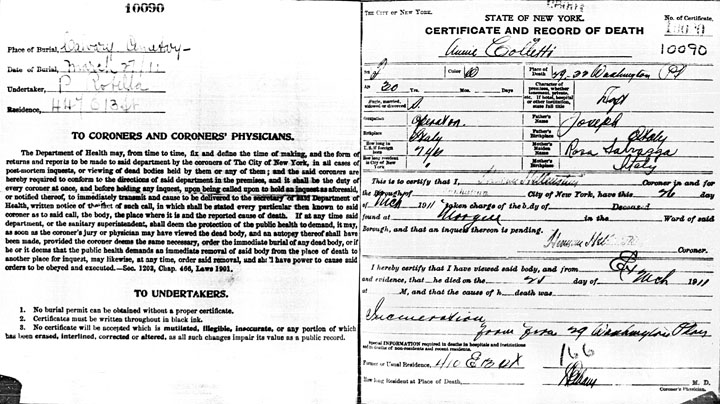 10090
Place of Burial,
Date of Burial, March 27/11
Undertaker, P
Residence, 447 E 13 St
TO CORONERS AND CORONERS' PHYSICIANS.
The Department of Health may, from time to time, fix and define the time of making, and the form of
returns and reports to be made to said department by the coroners of The City of New York, in all cases of
post-mortem inquests, or viewing of dead bodies held by them or any of them; and the said coroners are
hereby required to conform to the directions of said department in the premises, and it shall be the duty of
every coroner at once, and before holding any inquest, upon being called upon to hold an inquest as aforesaid,
or notified thereof, to immediately transmit and cause to be delivered to the secretary of said Department of
Health, written notice of the fact of such call, in which shall be stated every particular then known to said
coroner as to said call, the body, the place where it is and the reported cause of death. If at any time said
department, or the sanitary superintendent, shall deem the protection of the public health to demand, it may,
as soon as the coroner's jury or physicians may have viewed the dead body, and an autopsy thereof shall have
been made, provided the coroner deems the same necessary, order the immediate burial of any dead body, or if
he or it deems that the public health demands an immediate removal of said body from the place of death to
another place for inquest, may likewise, at any time, order said removal, and shall have power to cause said
orders to be obeyed and executed.—Sec. 1203, Chap. 466, Laws 1901.
TO UNDERTAKERS.
1. No burial permit can be obtained without a proper certificate.
2. Certificates must be written throughout in black ink.
3. No certificate will be accepted which is mutilated, illegible, inaccurate, or any portion of which
has been erased, interlined, corrected or altered, as all such changes impair its value as a public record.
THE CITY OF NEW YORK.
STATE OF NEW YORK.
No. of Certificate,
CERTIFICATE AND RECORD OF DEATH
10090
Annie Colletti
10090
Sex F
Color W
Place of Death 29-33 Washington Pl
Age 30 Yrs. Mos. Days
Character of premises, whether tenement, private, etc. If hotel, hospital or other institution, state full title Loft
Single, married, widowed or divorced S.
Occupation Operator
Father's Name Joseph
Birthplace Italy
Father's Birthplace Italy
How long in U.S. if foreign born
Mother's Maiden Name Rosa
How long resident in City of New York
Mother's Birthplace Italy
This is to certify that I, Coroner in and for
the Borough of Manhattan City of New York, have this 26 day
of Mch 1911 taken charge of the body of Deceased
found at Morgue in the Ward of said
Borough, and that an inquest thereon is pending.
Coroner.
I hereby certify that I have viewed said body, and from Ex
and evidence, that he died on the 25 day of Mch 1911
at M, and that the cause of h death was
Incineration
from fire 29 Washington Place
Special INFORMATION required in deaths in hospitals and institutions
and in deaths of non-residents and recent residents.
166
Former or Usual Residence, 410 E 13 St
How long Resident at Place of Death,
M. D.
Coroner's Physician.